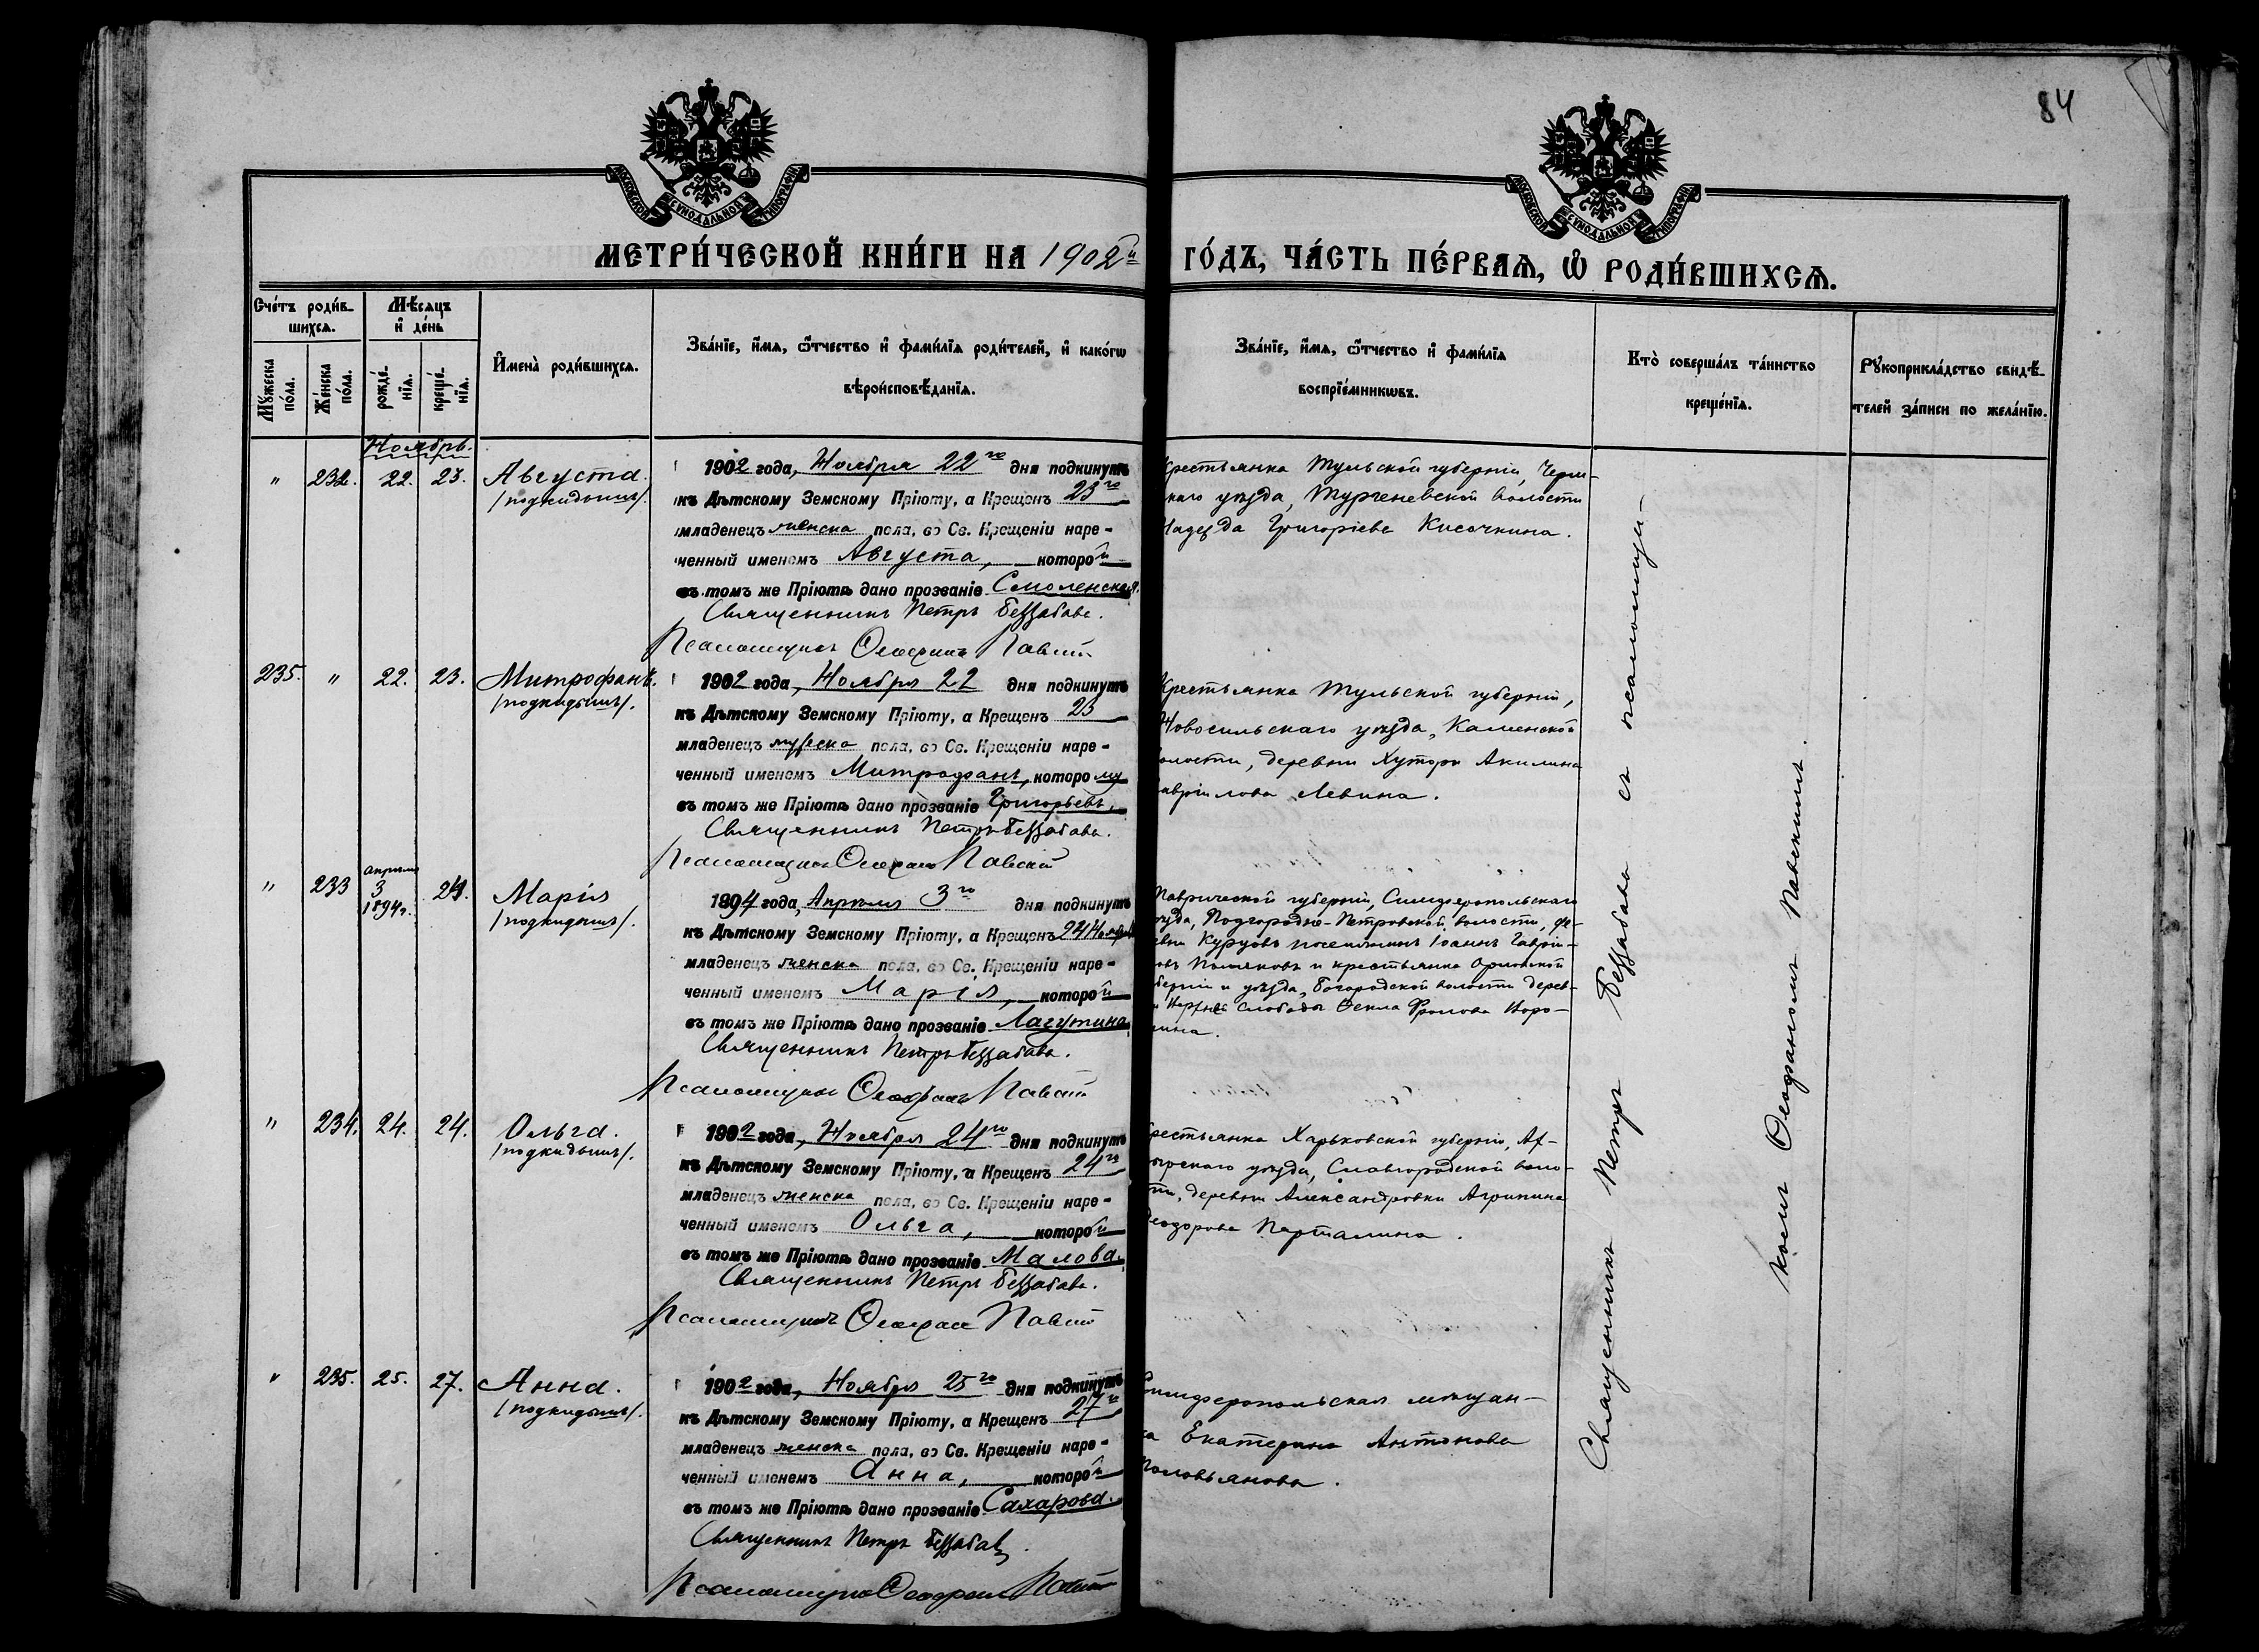 84
МОСКОВСКОЙ СѴНОДАЛЬНОЙ ТИПОГРАФІИ
МОСКОВСКОЙ СѴНОДАЛЬНОЙ ТИПОГРАФІИ
МЕТРИ́ЧЕСКОЙ КНИ́ГИ НА 1902й ГО́ДЪ, ЧА́СТЬ ПЕ́РВАѦ, Ѡ҆ РОДИ́ВШИХСѦ.
Сче́тъ роди́в-
шихсѧ.
Мꙋ́жеска по́ла.
Же́нска по́ла.
Мѣ́сѧцъ
и҆ де́нь
рожде́-
нїѧ.
креще́-
нїѧ.
И҆мена̀ роди́вшихсѧ.
Зва́нїе, и҆́мѧ, ѻ҆́тчество и҆ фами́лїѧ роди́телей, и҆ како́гѡ
вѣроисповѣ́данїѧ.
Зва́нїе, и҆́мѧ, ѻ҆́тчество и҆ фами́лїѧ
воспрїе́мникѡвъ.
Кто̀ соверша́лъ та́инство
креще́нїѧ.
Рꙋкоприкла́дство свидѣ́-
телей за́писи по жела́нїю.
Ноябрь.
" 232. 22. 23. Августа.
/подкидышъ/.
1902 года, Ноября 22го дня подкинутъ
къ Дѣтскому Земскому Пріюту, а Крещенъ 23го
младенецъ женска пола, во Св. Крещеніи наре-
ченный именемъ Августа, которой
въ томъ же Пріютѣ дано прозваніе Смоленская.
Священникъ Петръ Беззабава.
Псаломщикъ Ѳеофанъ Павскій
Крестьянка Тульской губерніи, Черн-
скаго уѣзда, Тургеневской волости
Надежда Григоріева Кисочкина.
235. " 22. 23. Митрофанъ.
/подкидышъ/.
1902 года, Ноября 22 дня подкинутъ
къ Дѣтскому Земскому Пріюту, а Крещенъ 23
младенецъ мужеска пола, во Св. Крещеніи наре-
ченный именемъ Митрофанъ, которому
въ томъ же Пріютѣ дано прозваніе Григорьевъ.
Священникъ Петръ Беззабава.
Псаломщикъ Ѳеофанъ Павскій
Крестьянка Тульской губерніи,
Новосильскаго уѣзда, Каменской
волости, деревни Хутори Акилина
Гавріилова Левина.
" 233 апрѣля 3 1894г. 24. Марія
/подкидышъ/.
1894 года, Апрѣля 3го дня подкинутъ
къ Дѣтскому Земскому Пріюту, а Крещенъ 24 Ноября
младенецъ женска пола, во Св. Крещеніи наре-
ченный именемъ Марія, которой
въ томъ же Пріютѣ дано прозваніе Лагутина
Священникъ Петръ Беззабава.
Псаломщикъ Ѳеофанъ Павскій
Таврической губерніи, Симферопольскаго
уѣзда, Подгородне-Петровской волости, де-
ревни Курцовъ поселянинъ Іоаннъ Гаврii-
ловъ Поляковъ и крестьянка Орловской
губерніи и уѣзда, Богородской волости дерев-
слободы Ѳекла Фролова Норо-
" 234. 24. 24. Ольга.
/подкидышъ/.
1902 года, Ноября 24го дня подкинутъ
къ Дѣтскому Земскому Пріюту, а Крещенъ 24го
младенецъ женска пола, во Св. Крещеніи наре-
ченный именемъ Ольга, которой
въ томъ же Пріютѣ дано прозваніе Малова.
Священникъ Петръ Беззабава.
Псаломщикъ Ѳеофанъ Павскій
Крестьянка Харьковской губерніи, Ах-
тырскаго уѣзда, Славгородской воло-
сти, деревни Александровки Агрипина
Ѳеодорова Парталина.
" 235. 25. 27. Анна.
/подкидышъ/.
1902 года, Ноября 25го дня подкинутъ
къ Дѣтскому Земскому Пріюту, а Крещенъ 27го
младенецъ женска пола, во Св. Крещеніи наре-
ченный именемъ Анна, которой
въ томъ же Пріютѣ дано прозваніе Сахарова.
Священникъ Петръ Беззабава.
Псаломщикъ Ѳеофанъ Павскій
Симферопольская мѣщан-
ка Екатерина Антонова
Священникъ Петръ Беззабава съ псаломщи-
комъ Ѳеофаномъ Павскимъ.